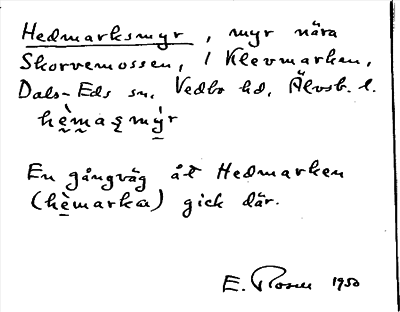 Hedmarksmyr, myr nära
Skorvemossen, i Klevmarken,
Dals-Eds sn, Vedbo hd, Älvsb. l.
hèmaṣmẏ̀r
En gångväg åt Hedmarken
(hèmarka) gick där.
E. Rosell 1950